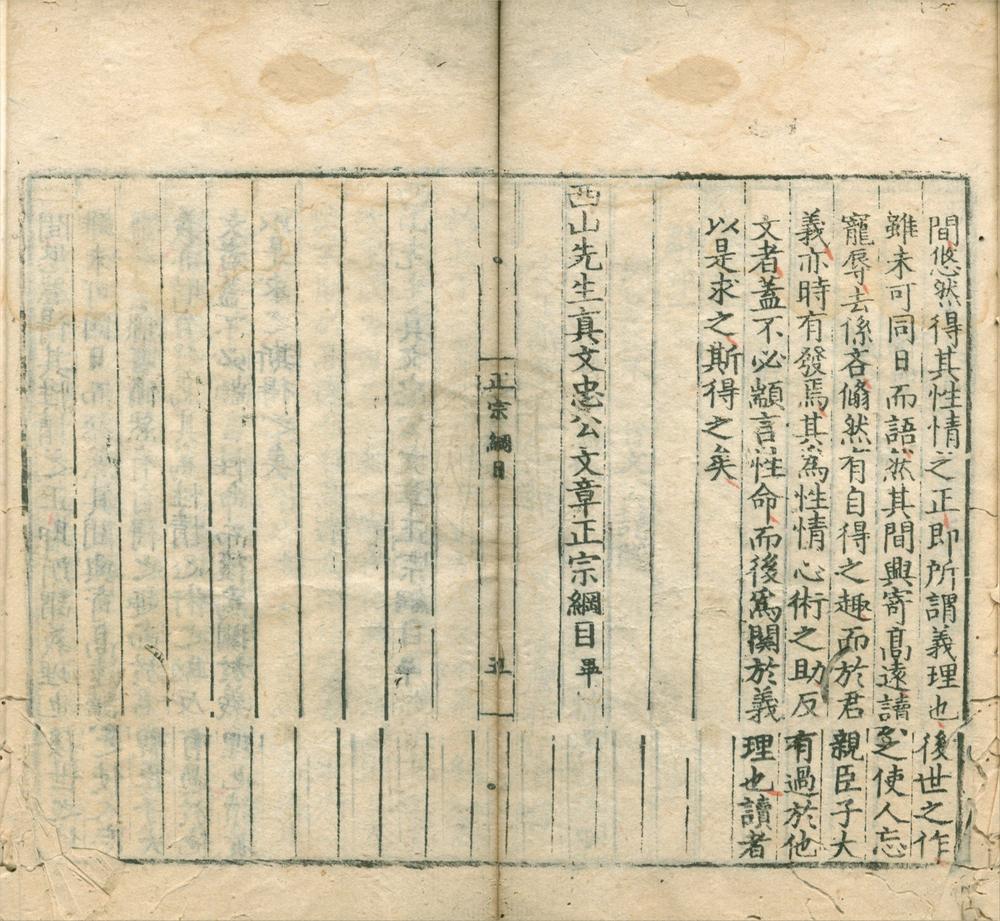 間悠然得其性情之正即所謂義理也後世之作
雖未可同日而語然其間興寄髙遠讀之使人忘
寵辱去係吝翛然有自得之趣而於君親臣子大
義亦時有發焉其為性情心術之助反有過於他
文者蓋不必顓言性命而後為關於義理也讀者
以是求之斯得之矣
西山先生真文忠公文章正宗綱目畢
正宗綱目